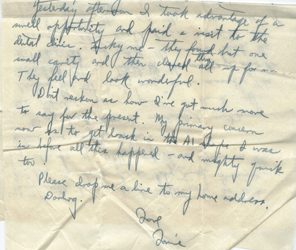 Yesterday afternoon I took advantage of a
swell opportunity and paid a visit to the
dental clinic. Lucky me - they found but one
small cavity and then cleaned all up for me.
They feel and look wonderful.
Don't reckon as how I've got much more
to say for the present. My primary concern
now is to get back in the A1 shape I was
in before all this happened - and mighty quick
too
Please drop me a line to my home address,
Darling.
Love